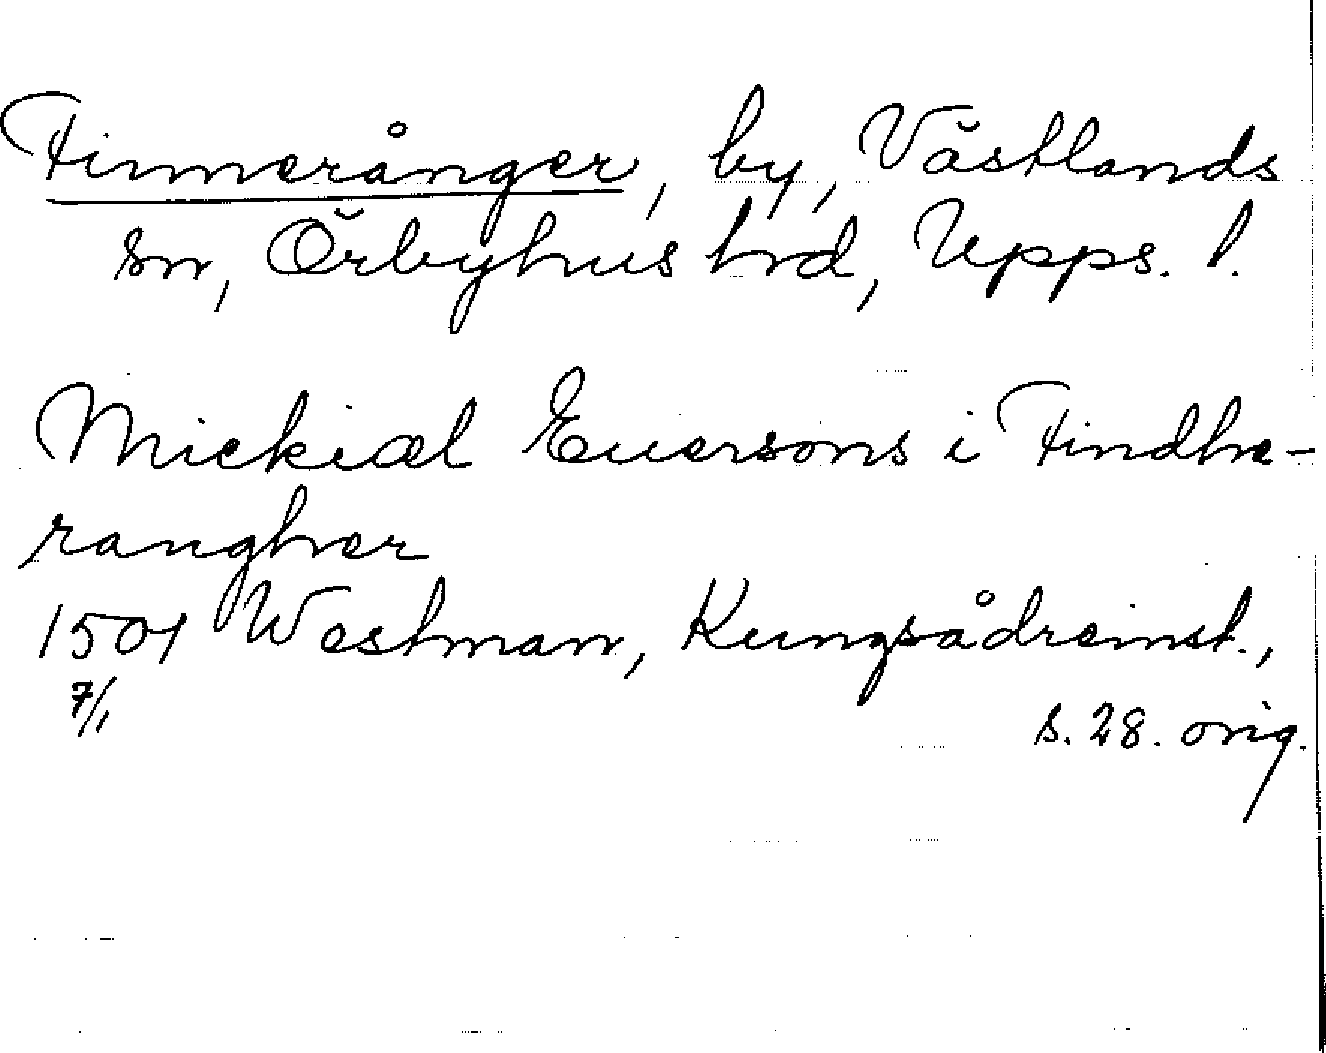 Finnerånger, by, Västlands
sn, Örbyhus hrd, Upps. l.
Mickiæl Euersons i Findhe-
rangher
1501 Westman, Kungsådreinst.,
7/1
s. 28. orig.